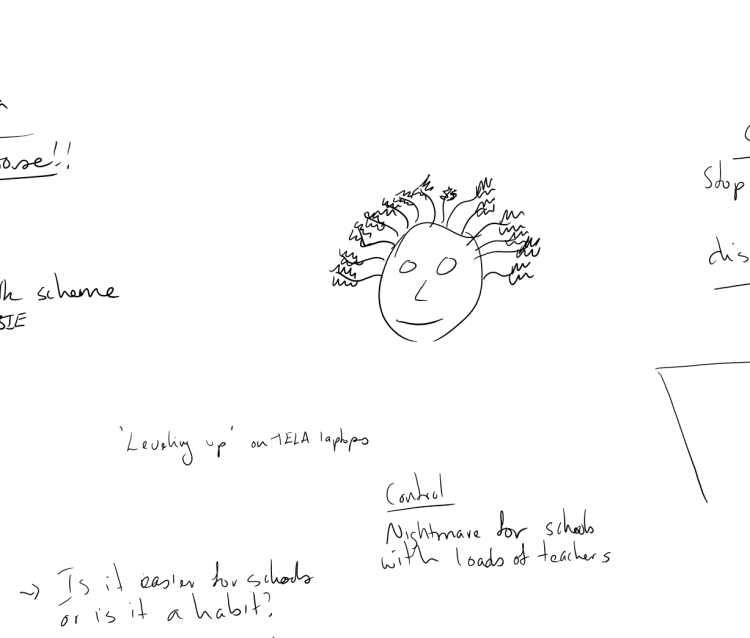 scheme
'Leveling up' on TELA laptops
Control
Nightmare for schools
with loads of teachers
→ Is it easier for schools
or is it a habit?
Stop